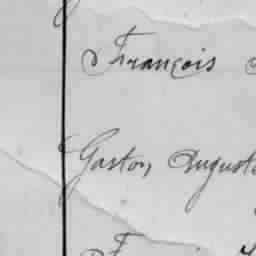 François
Gaston, Auguste